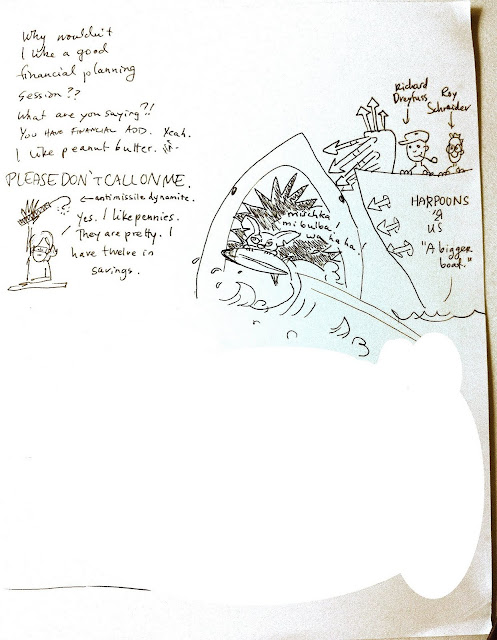 Why wouldn't
I like a good
financial planning
session??
What are you saying?!
YOU HAVE FINANCIAL ADD. Yeah.
I like peanut butter.
PLEASE DON'T CALL ON ME.
←antimissile dynamite.
Yes. I like pennies.
They are pretty. I
have twelve in
savings.
Richard
Dreyfuss
Roy
Schneider
muchka
mi bulba!
wa ha ha!
HARPOONS
Я
US
"A bigger
boat."